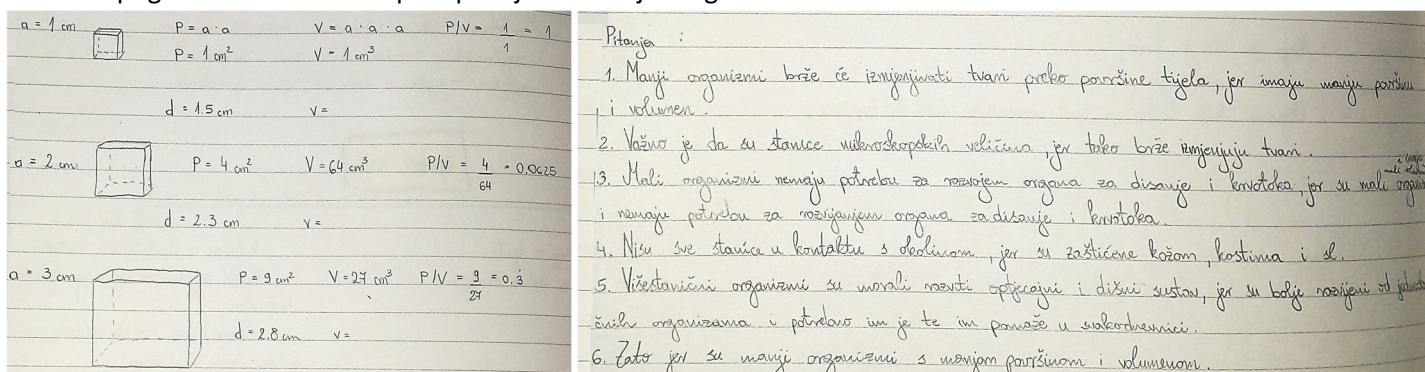 a = 1 cm P = a · a V = a · a · a P/V = 1/1 = 1
P = 1 cm² V = 1 cm³
d = 1.5 cm V =
a = 2 cm P = 4 cm² V = 64 cm³ P/V = 4/64 = 0.0625
d = 2.3 cm V =
a = 3 cm P = 9 cm² V = 27 cm³ P/V = 9/27 = 0.3̇
d = 2.8 cm V =
Pitanja :
1. Manji organizmi brže će izmjenjivati tvari preko površine tijela, jer imaju manju površinu
i volumen.
2. Važno je da su stanice mikroskopskih veličina, jer tako brže izmjenjuju tvari.
3. Mali organizmi nemaju potrebu za razvojem organa za disanje i krvotoka, jer su mali
i nemaju potrebu za razvijanjem organa za disanje i krvotoka.
4. Nisu sve stanice u kontaktu s okolinom, jer su zaštićene kožom, kostima i sl.
5. Višestanični organizmi su morali razviti optjecajni i dišni sustav, jer su bolje razvijeni od
čnih organizama i potrebno im je te im pomaže u svakodnevnici.
6. Zato jer su manji organizmi s manjom površinom i volumenom.